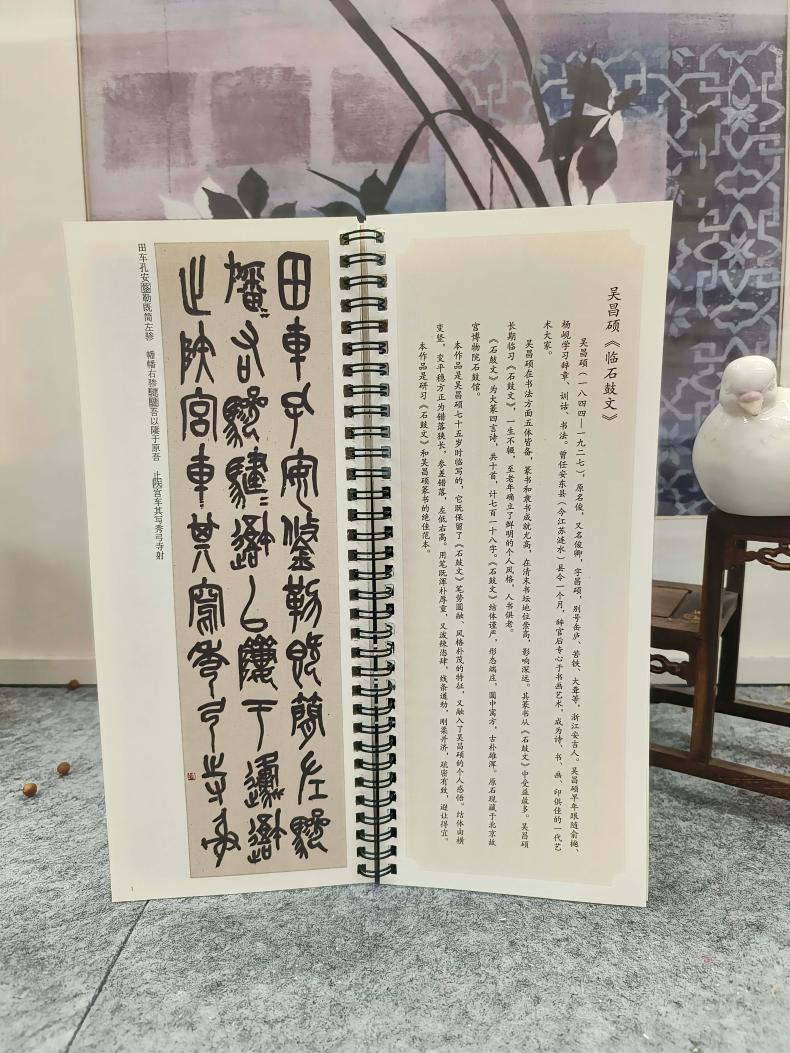 吴昌硕《临石鼓文》
吴昌硕（一八四四—一九二七），原名俊，又名俊卿，字昌硕，别号缶庐、苦铁、大聋等，浙江安吉人。吴昌硕早年跟随俞樾、
杨岘学习辞章、训诂、书法。曾任安东县（今江苏涟水）县令一个月，辞官后专心于书画艺术，成为诗、书、画、印俱佳的一代艺
术大家。
吴昌硕在书法方面五体皆备，篆书和隶书成就尤高，在清末书坛地位崇高，影响深远。其篆书从《石鼓文》中受益最多。吴昌硕
长期临习《石鼓文》，一生不辍，至老年确立了鲜明的个人风格，人书俱老。
《石鼓文》为大篆四言诗，共十首，计七百一十八字。《石鼓文》结体谨严，形态端庄，圆中寓方，古朴雄浑。原石现藏于北京故
宫博物院石鼓馆。
本作品是吴昌硕七十五岁时临写的，它既保留了《石鼓文》笔势圆融、风格朴茂的特征，又融入了吴昌硕的个人感悟。结体由横
变竖，变平稳方正为错落狭长，参差错落，左低右高。用笔既浑朴厚重，又泼辣恣肆，线条遒劲，刚柔并济，疏密有致，避让得宜。
本作品是研习《石鼓文》和吴昌硕篆书的绝佳范本。
田車孔安鋚勒既簡左驂
旛=右驂騝=避以隮于邍避
止陕宫車其寫秀弓寺射
田车孔安鋚勒既简左骖　幡幡右骖騝騝吾以隮于原吾　止陕宫车其写秀弓寺射
1